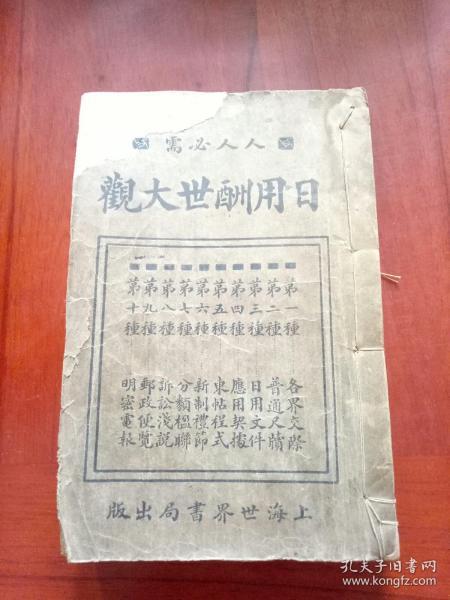 人人必需
日用酬世大觀
第一種 各界交際
第二種 普通尺牘
第三種 日用文件
第四種 應用契據
第五種 柬帖程式
第六種 新制禮節
第七種 分類楹聯
第八種 訴訟淺說
第九種 郵政便覽
第十種 明密電報
上海世界書局出版
孔夫子旧书网
www.kongfz.com